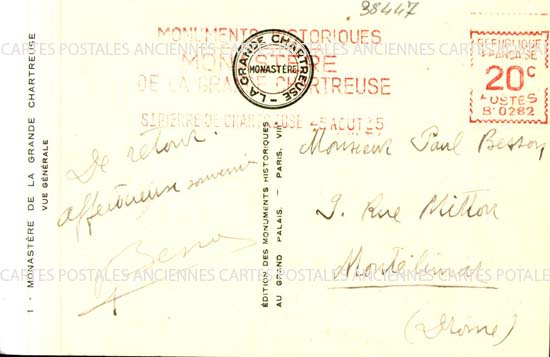 38447
MONUMENTS HISTORIQUES
MONASTÈRE
DE LA GRANDE CHARTREUSE
ST PIERRE DE CHARTREUSE -5 AOUT 35
LA GRANDE CHARTREUSE
MONASTÈRE
RÉPUBLIQUE
FRANÇAISE
20c
POSTES
B 0282
CARTES POSTALES ANCIENNES CARTES POSTALES ANCIENNES CARTES POSTALES
1 - MONASTÈRE DE LA GRANDE CHARTREUSE
VUE GÉNÉRALE
De retour.
Affectueux souvenir
Besson
ÉDITION DES MONUMENTS HISTORIQUES
AU GRAND PALAIS. - PARIS. VIII
Monsieur Paul Besson
9. Rue Mitton
Montélimar
(Drôme)
CARTES POSTALES ANCIENNES CARTES POSTALES ANCIENNES CARTES POTALES